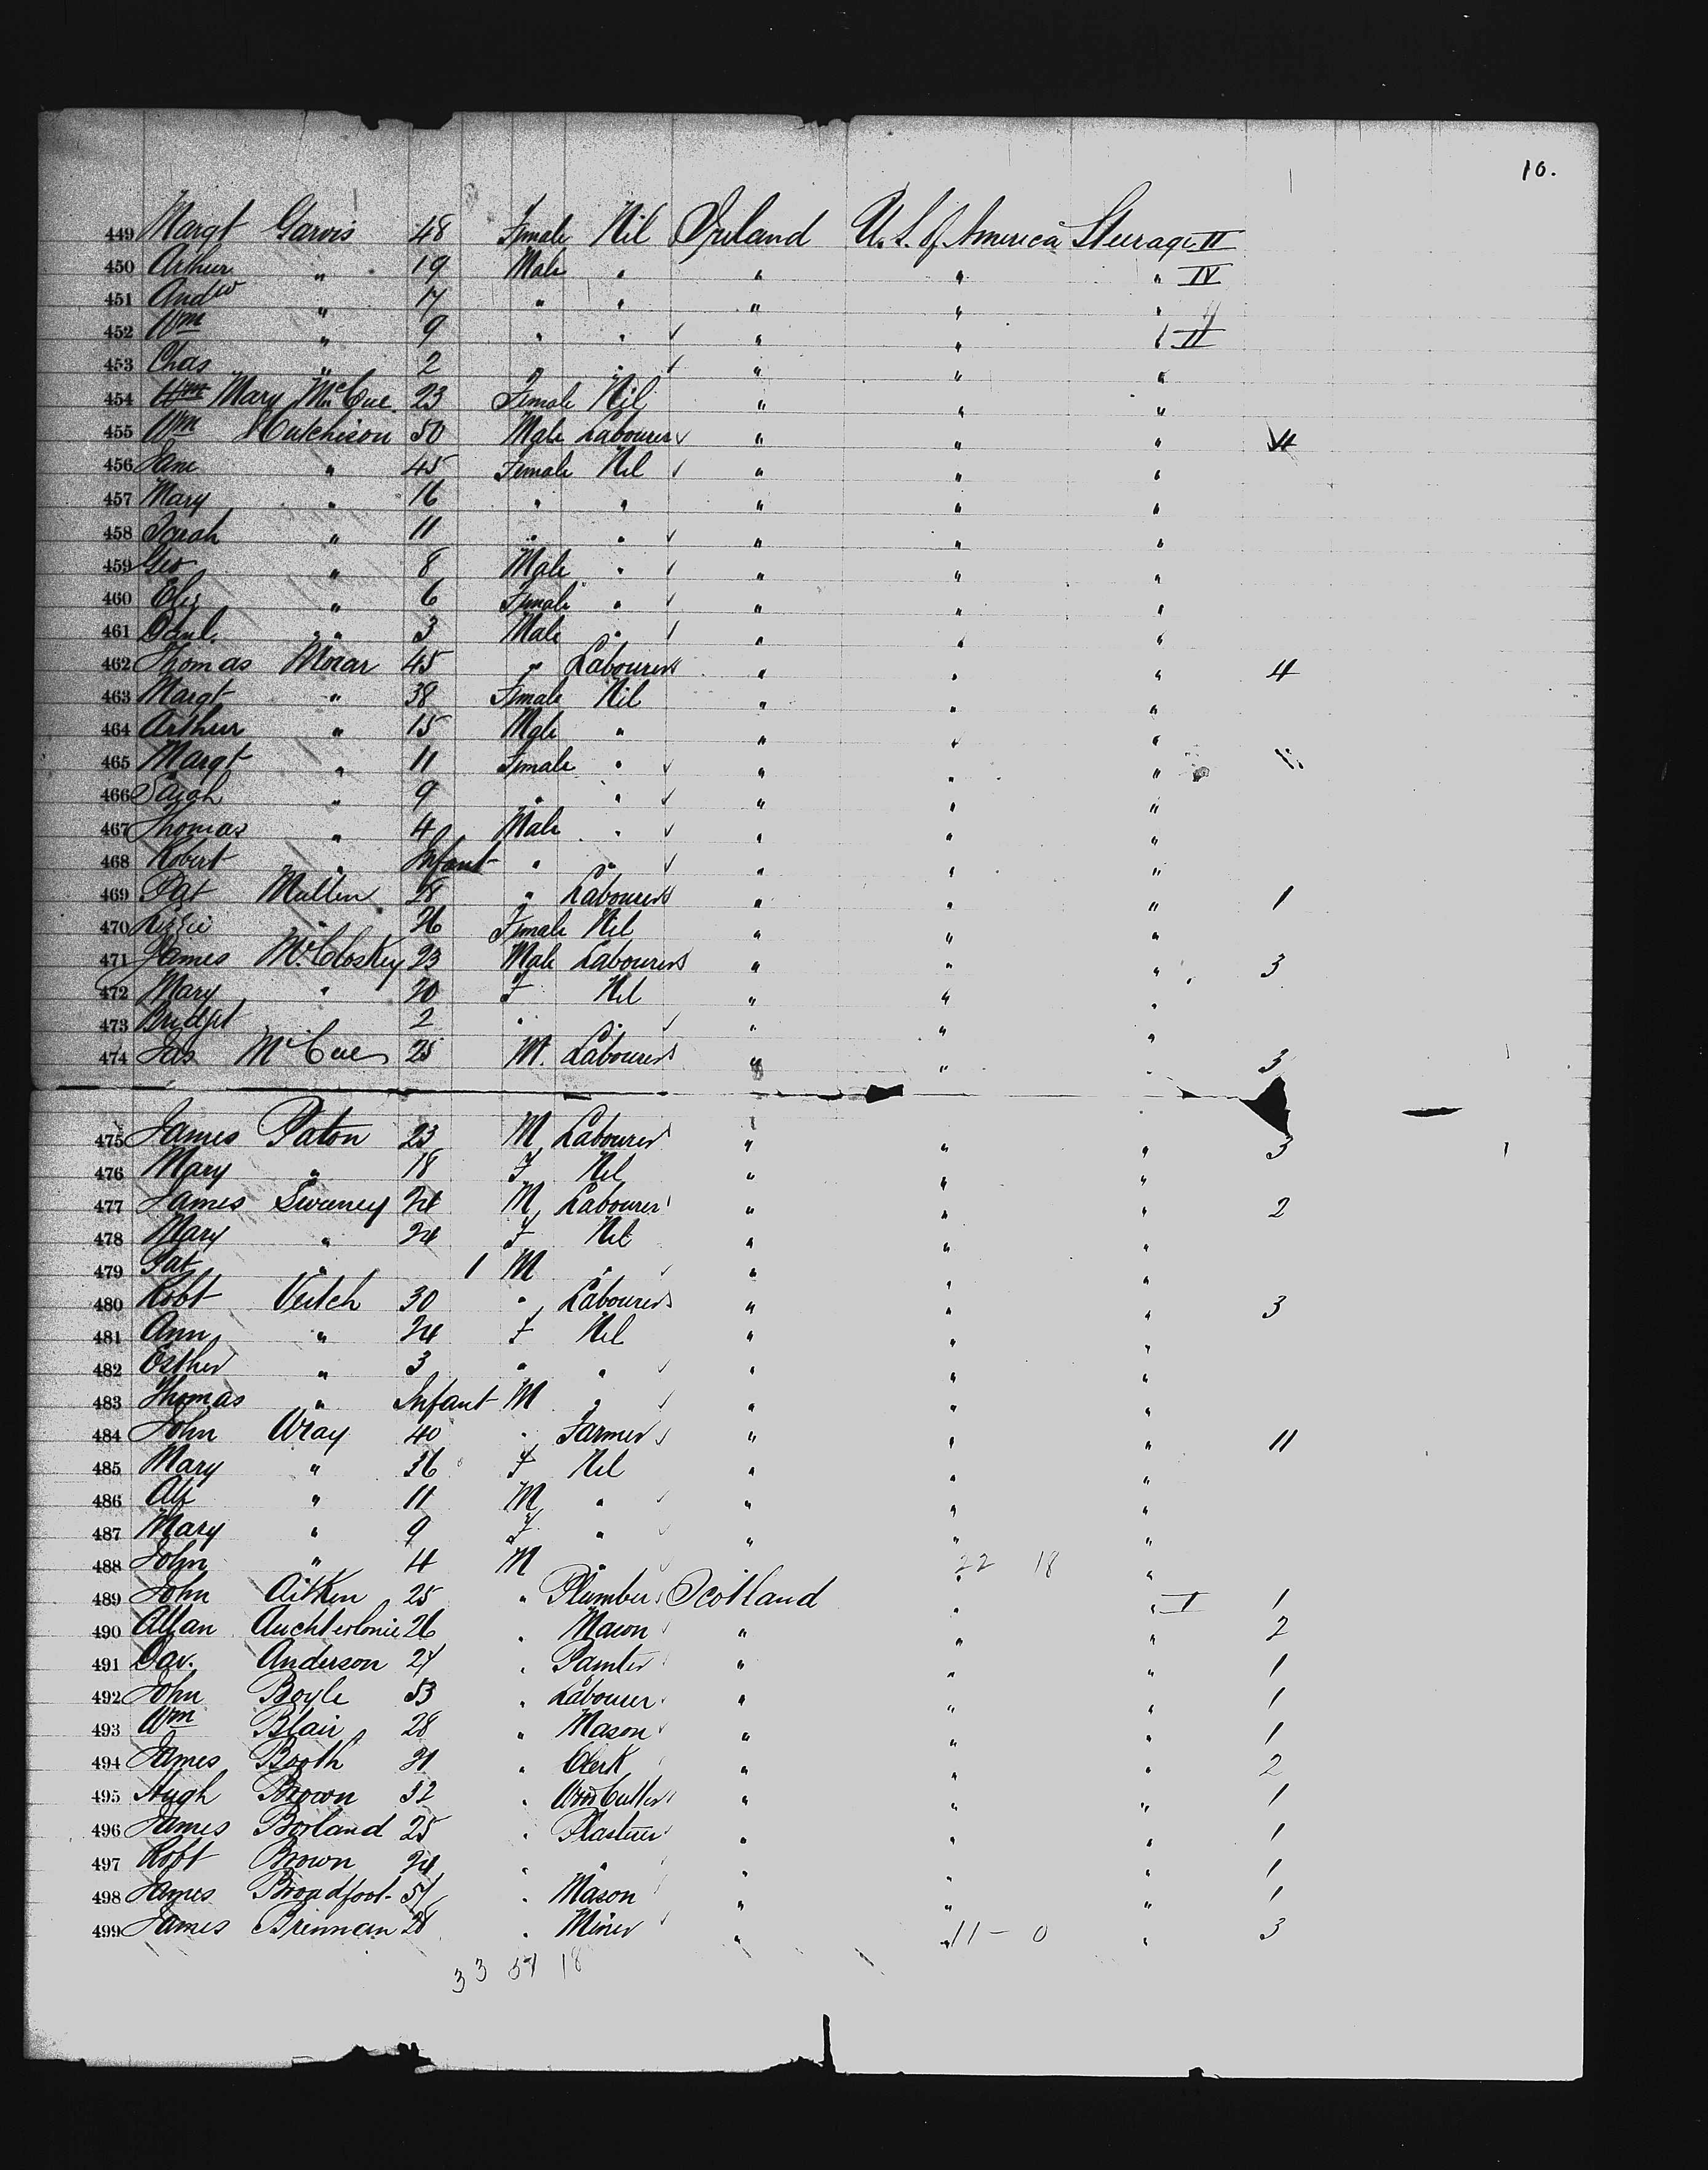 10.
449 Margt Garvis 48 Female Nil Ireland U.S. of America Steerage II
450 Arthur " 19 Male " " " " IV
451 Andw " 17 " " " " "
452 Wm " 9 " " ✓ " " " II
453 Chas " 2 " " ✓ " " "
454 Mary McCue 23 Female Nil " " "
455 Wm Hutchison 50 Male Labourer ✓ " " "
456 Jane " 45 Female Nil ✓ " " "
457 Mary " 16 " " " " "
458 Sarah " 11 " " ✓ " " "
459 Geo " 8 Male " ✓ " " "
460 Eliz " 6 Female " ✓ " " "
461 Danl. " 3 Male " ✓ " " "
462 Thomas Moran 45 " Labourer " " " 4
463 Margt " 38 Female Nil " " "
464 Arthur " 15 Male " " " "
465 Margt " 11 Female " ✓ " " "
466 Sarah " 9 " " ✓ " " "
467 Thomas " 4 Male " ✓ " " "
468 Robert " Infant " " ✓ " " "
469 Pat Mullen 28 " Labourer " " " 1
470 Lizzie " 26 Female Nil " " "
471 James McCloskey 23 Male Labourer " " " 3
472 Mary " 20 F Nil " " "
473 Bridget " 2 " " ✓ " " "
474 Jas McCue 25 M. Labourer " " " 3
475 James Paton 23 M Labourer " " " 3
476 Mary " 18 F Nil " " "
477 James Sweeney 24 M Labourer " " " 2
478 Mary " 24 F Nil " " "
479 Pat " 1 M " ✓ " " "
480 Robt Veitch 30 " Labourer " " " 3
481 Ann " 24 F Nil " " "
482 Esther " 3 " " ✓ " " "
483 Thomas " Infant M " ✓ " " "
484 John Wray 40 " Farmer " " " 11
485 Mary " 36 F Nil " " "
486 Alf " 11 M " ✓ " " "
487 Mary " 9 F " ✓ " " "
488 John " 4 M " ✓ 22 18 "
489 John Aitken 25 " Plumber Scotland " " I 1
490 Allan Auchterlonie 26 " Mason " " " 2
491 Dav. Anderson 24 " Painter " " " 1
492 John Boyle 53 " Labourer " " " 1
493 Wm Blair 28 " Mason " " " 1
494 James Booth 21 " Clerk " " " 2
495 Hugh Brown 32 " " " " 1
496 James Borland 25 " Plasterer " " " 1
497 Robt Brown 24 " " " " " 1
498 James Broadfoot 51 " Mason " " " 1
499 James Brennan 28 " Miner " " 11 - 0 " 3
33 51 18